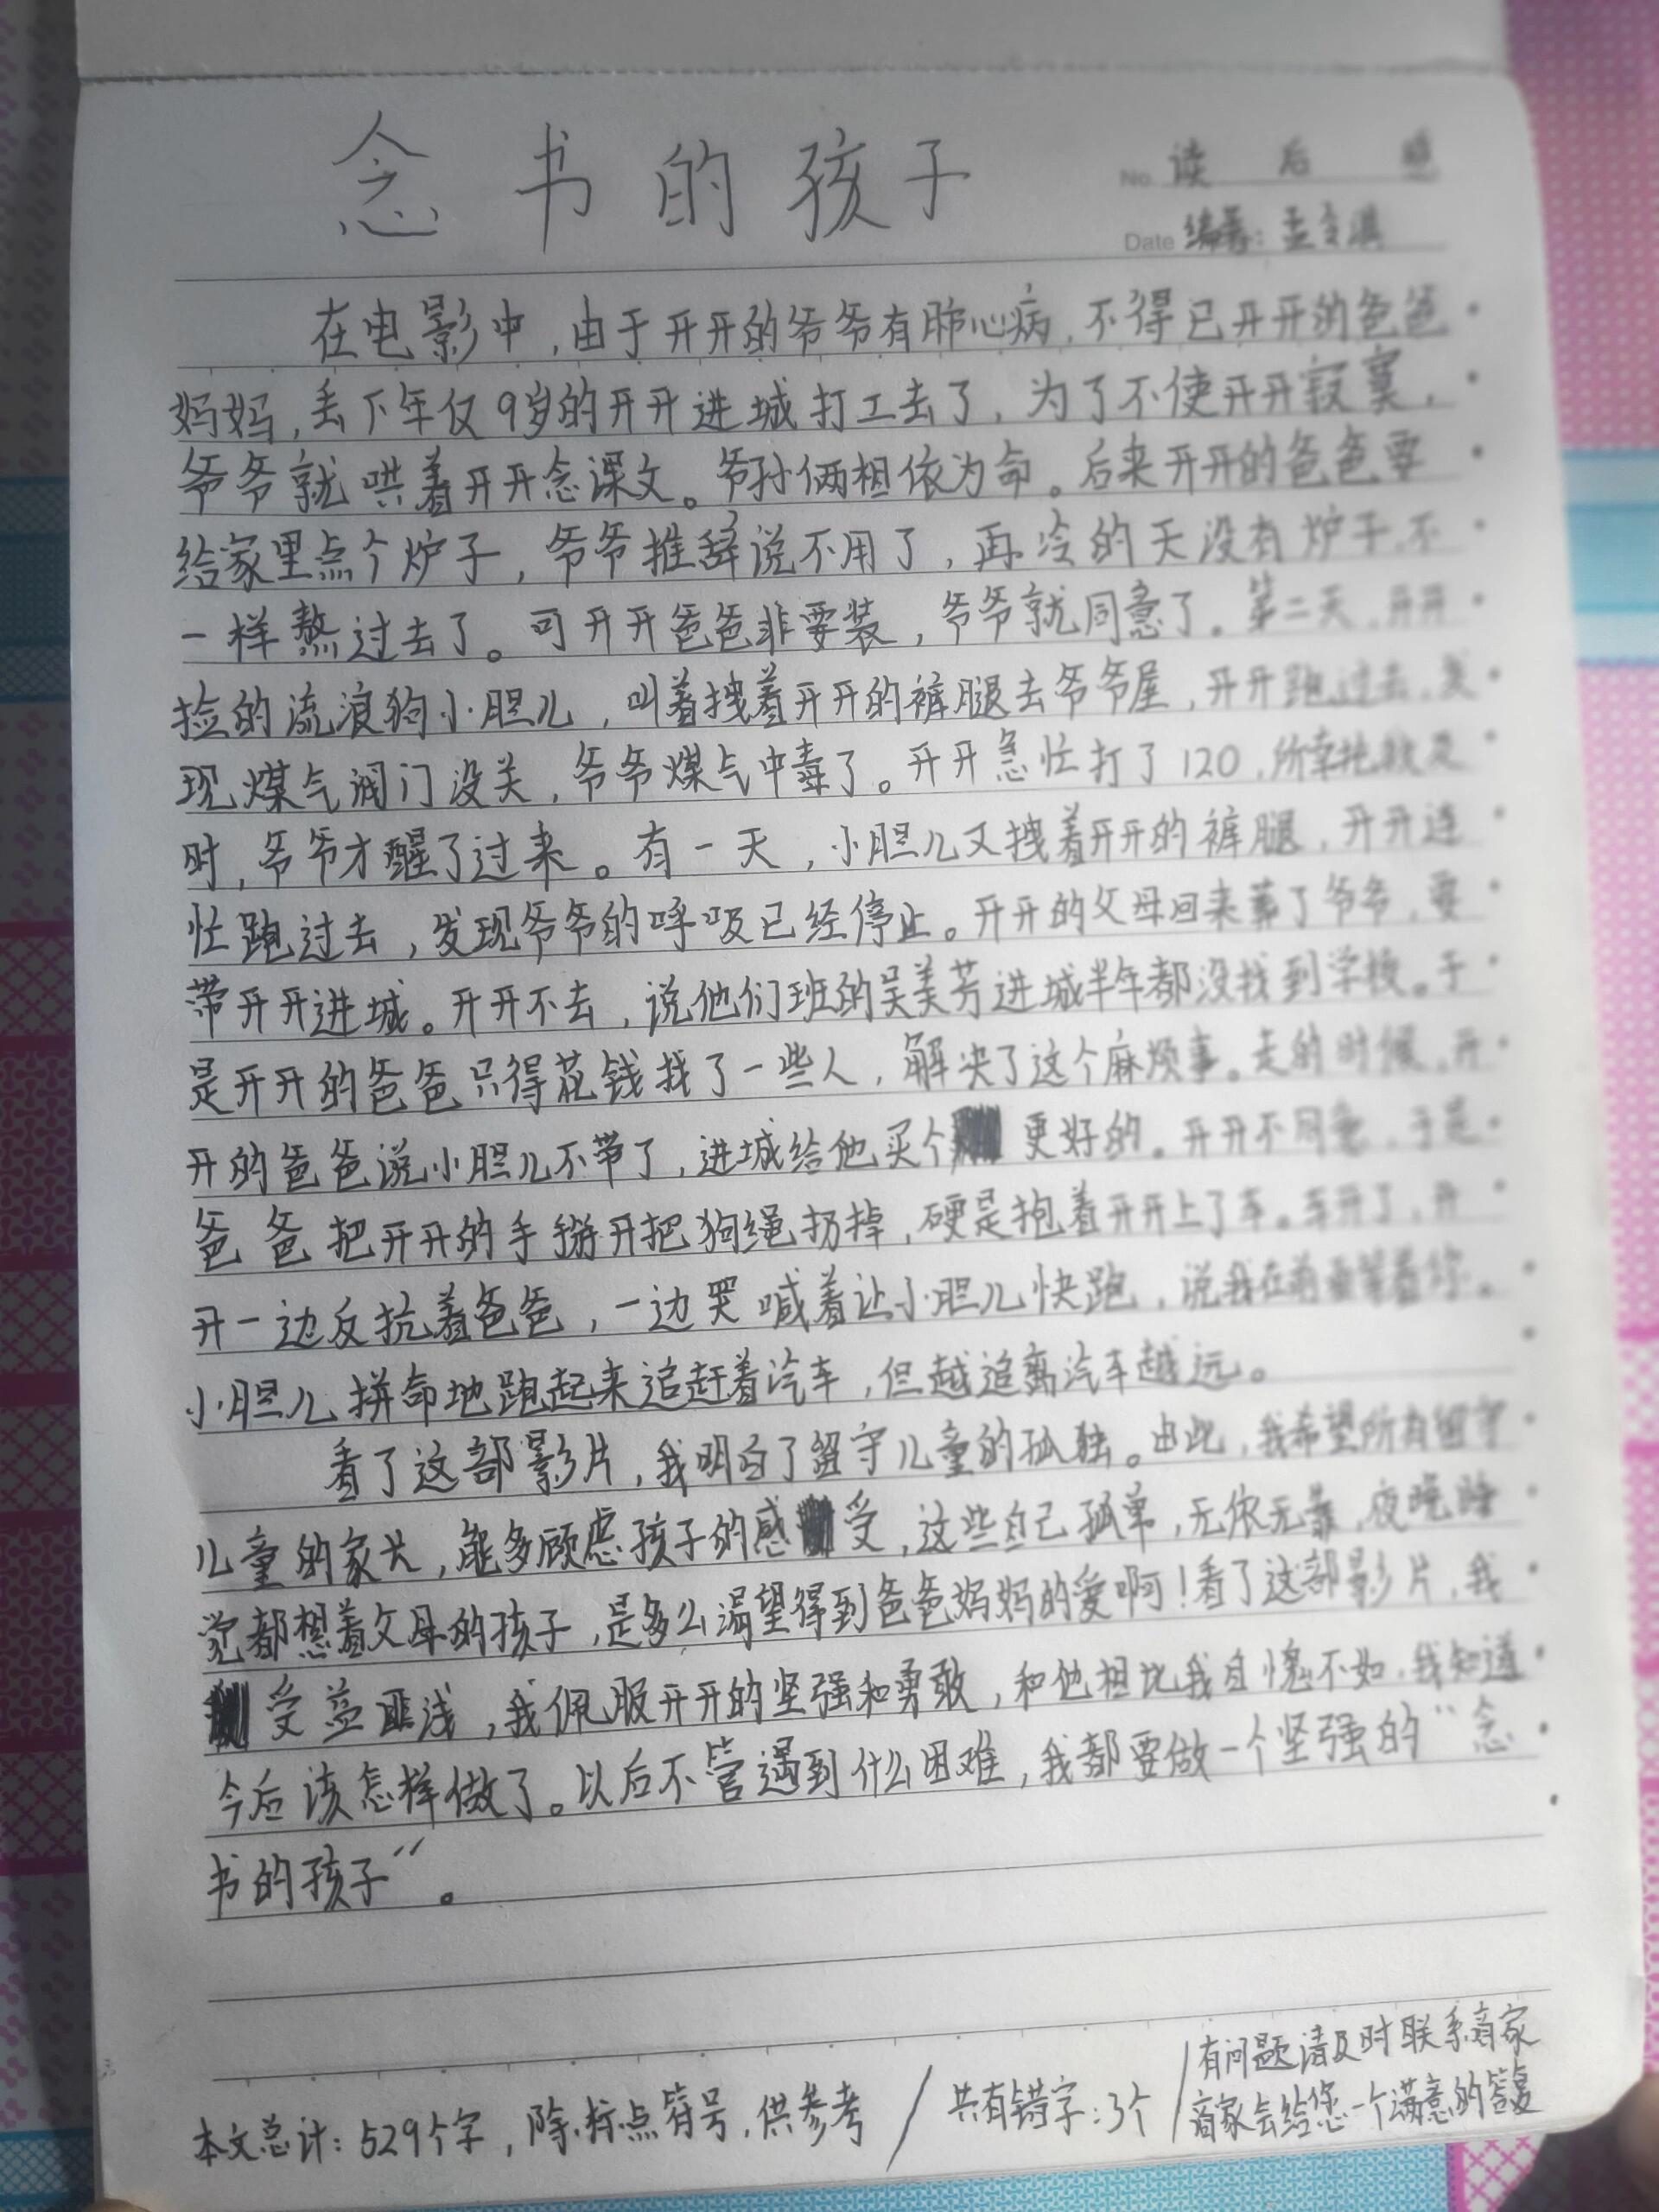 念书的孩子
No. 读后感
Date 编者：孟
在电影中，由于开开的爷爷有肺心病，不得已开开的爸爸
妈妈，丢下年仅9岁的开开进城打工去了，为了不使开开寂寞，
爷爷就哄着开开念课文。爷孙俩相依为命。后来开开的爸爸要
给家里点个炉子，爷爷推辞说不用了，再冷的天没有炉子不
一样熬过去了。可开开爸爸非要装，爷爷就同意了。第二天，开开
捡的流浪狗小胆儿，叫着拽着开开的裤腿去爷爷屋，开开跑过去发
现煤气阀门没关，爷爷煤气中毒了。开开急忙打了120，所幸抢救及
时，爷爷才醒了过来。有一天，小胆儿又拽着开开的裤腿，开开连
忙跑过去，发现爷爷的呼吸已经停止。开开的父母回来葬了爷爷，要
带开开进城。开开不去，说他们班的吴美芳进城半年都没找到学校。于
是开开的爸爸只得花钱找了一些人，解决了这个麻烦事。走的时候，开
开的爸爸说小胆儿不带了，进城给他买个更好的。开开不同意，于是
爸爸把开开的手掰开把狗绳扔掉，硬是抱着开开上了车。车开了，开
开一边反抗着爸爸，一边哭喊着让小胆儿快跑，说我在前面等着你。
小胆儿拼命地跑起来追赶着汽车，但越追离汽车越远。
看了这部影片，我明白了留守儿童的孤独。由此，我希望所有留守
儿童的家长，能多顾虑孩子的感受，这些自己孤单，无依无靠，夜晚睡
觉都想着父母的孩子，是多么渴望得到爸爸妈妈的爱啊！看了这部影片，我
受益匪浅，我佩服开开的坚强和勇敢，和他相比我自愧不如，我知道
今后该怎样做了。以后不管遇到什么困难，我都要做一个坚强的“念
书的孩子”。
本文总计：529个字，除标点符号，供参考 / 共有错字：3个 / 有问题请及时联系商家
商家会给您一个满意的答复